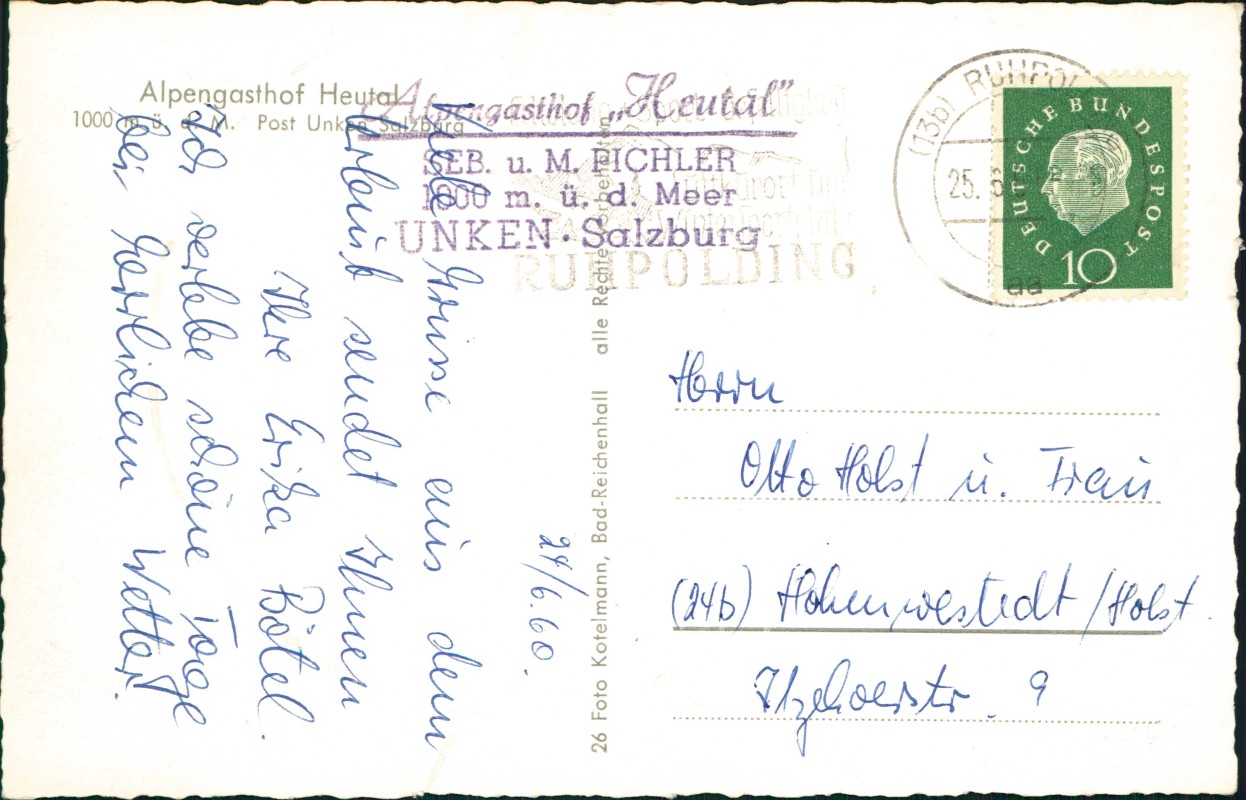 Alpengasthof Heutal
1000 m ü. d. M. Post Unken Salzburg
Alpengasthof „Heutal"
SEB. u. M. PICHLER
1000 m. ü. d. Meer
UNKEN · Salzburg
RUHPOLDING
(13b) RUHPOL
25. 6.
aa
DEUTSCHE BUNDESPOST
10
24/6.60.
Liebe Grüsse aus dem
Urlaub sendet Ihnen
Ihre Erika Bötel.
Ich verlebe schöne Tage
bei herrlichem Wetter.
26 Foto Kotelmann, Bad-Reichenhall alle Rechte vorbehalten
Herrn
Otto Holst u. Frau
(24b) Hohenwestedt / Holst.
Itzehoerstr. 9